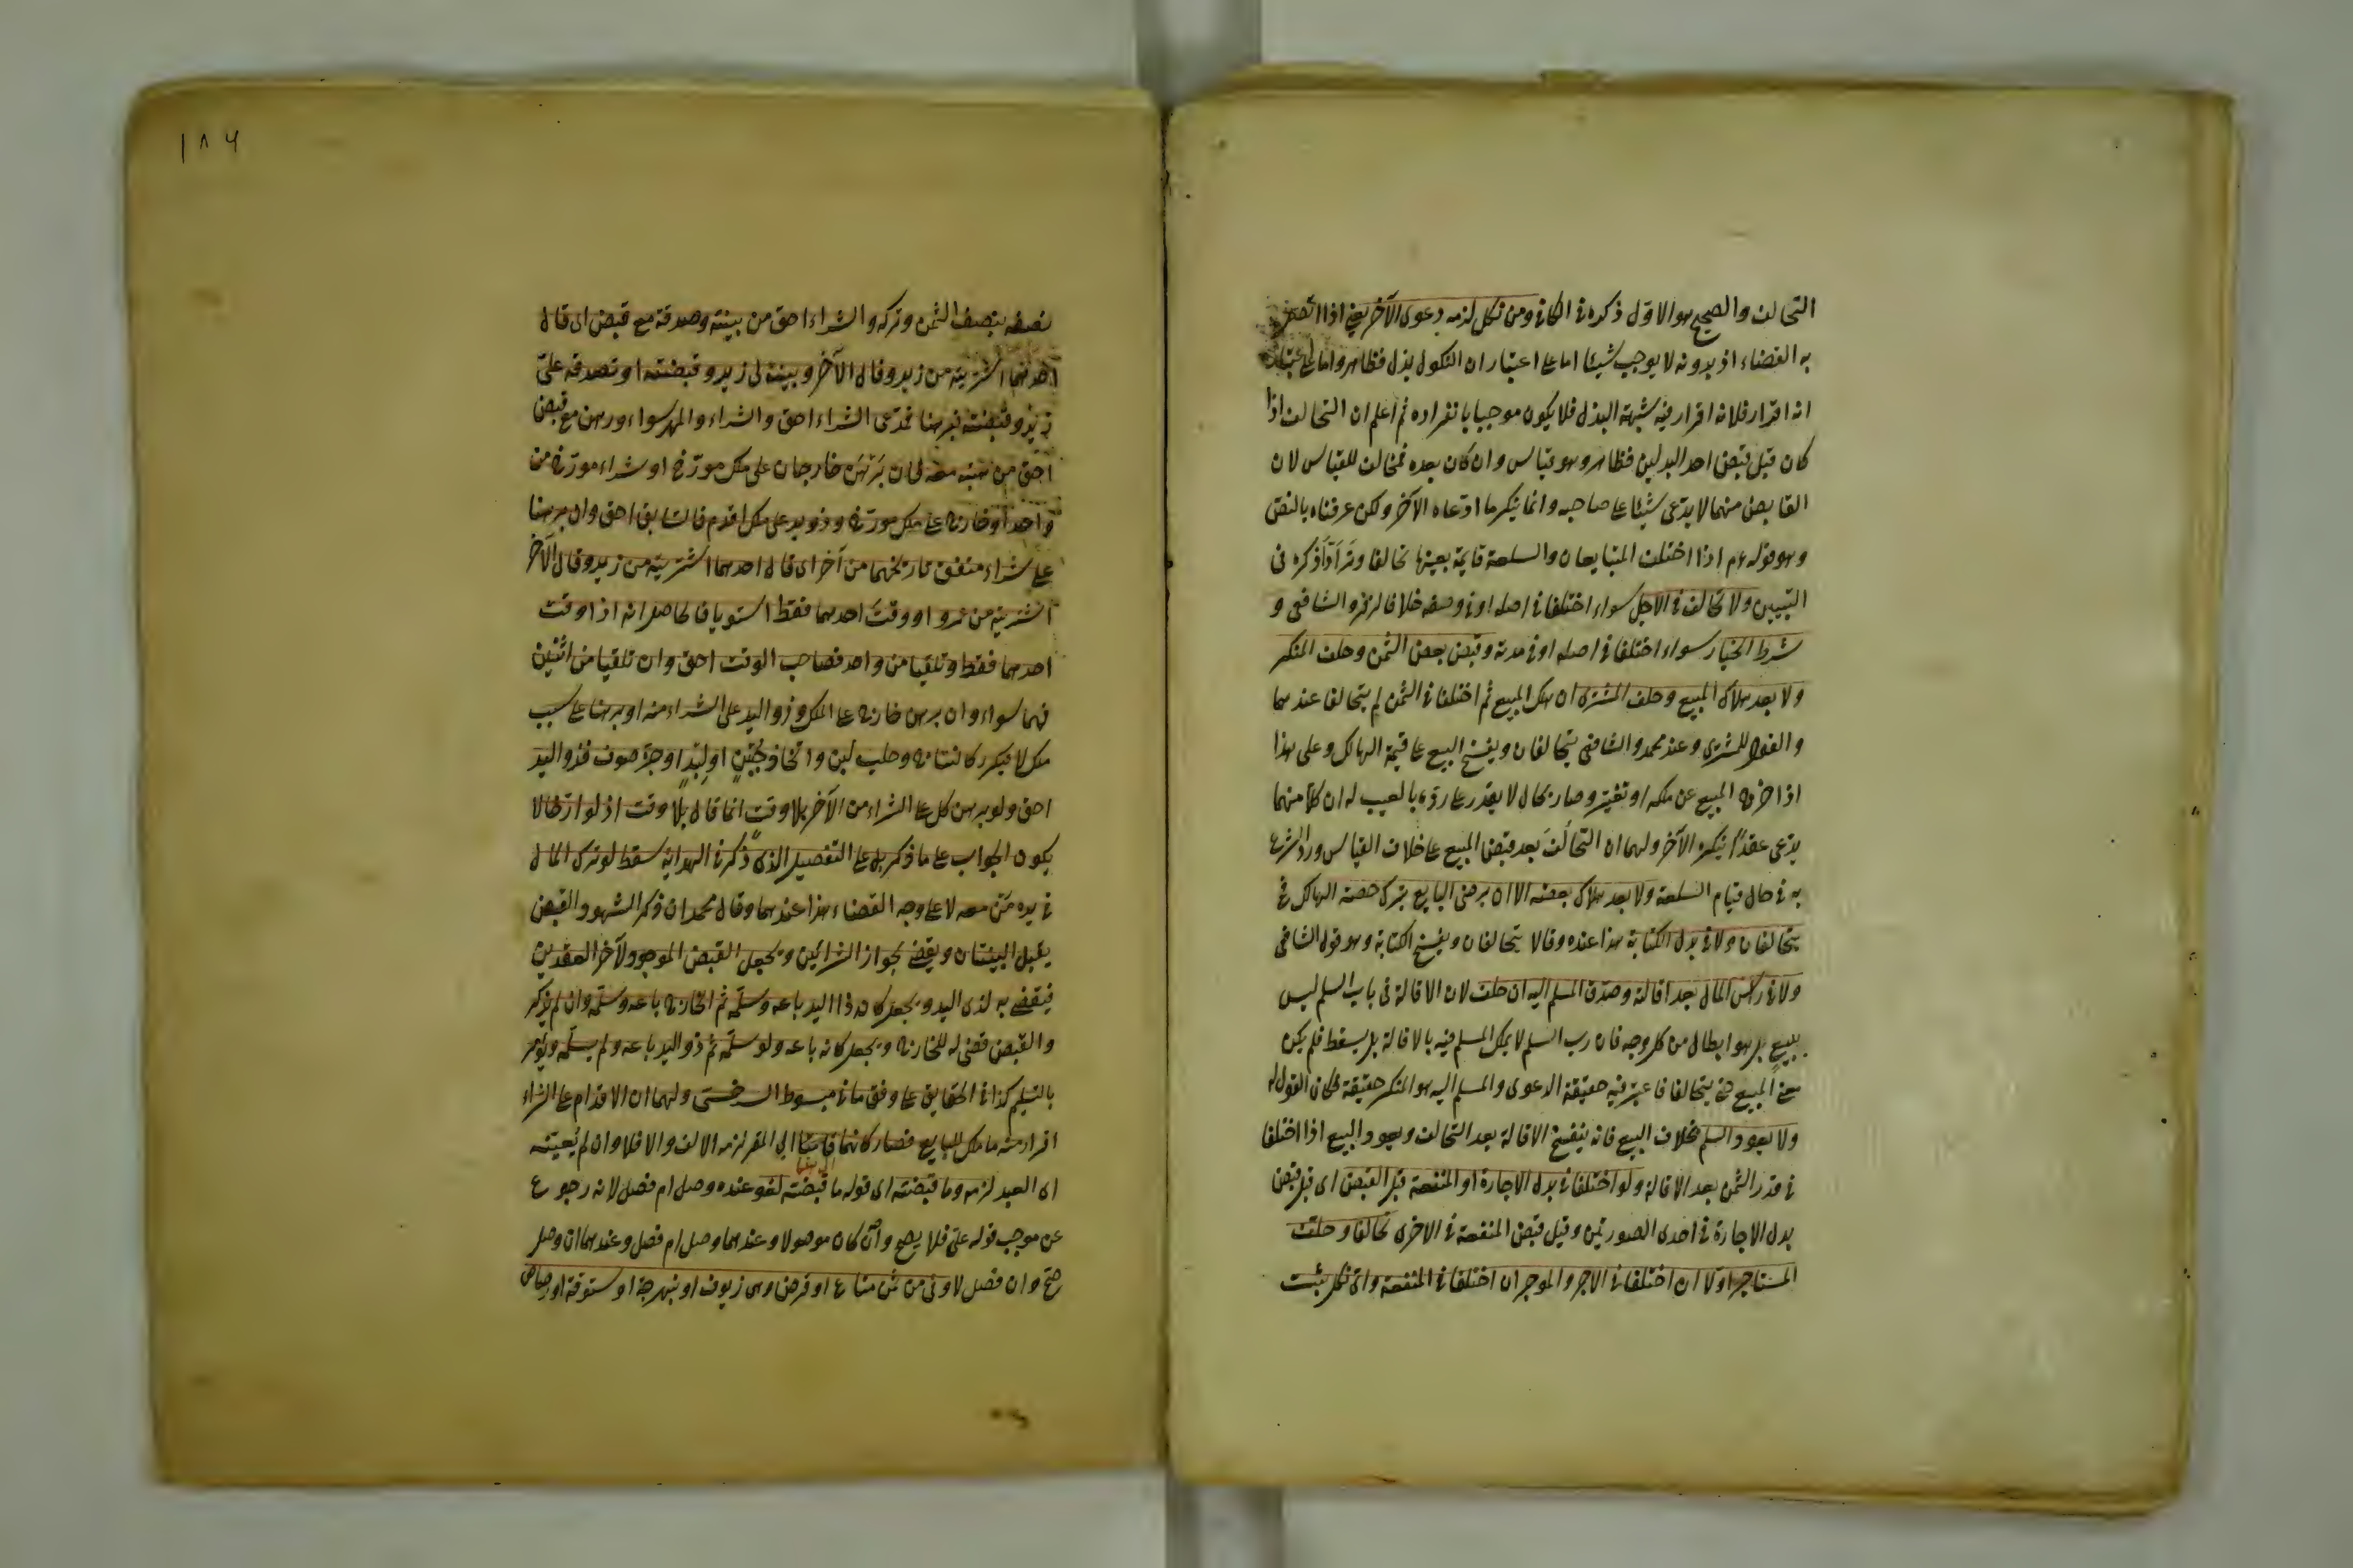 التحالف والصحيح هو الاول ذكره في الكافي ومن نكل لزمه دعوى الآخر يعني اذا اتصل
به القضاء اذ بدونه لا يوجب شيئا اما على اعتبار ان النكول بذل فظاهر واما على اعتبار
انه اقرار فلانه اقرار فيه شبهة البذل فلا يكون موجبا بانفراده ثم اعلم ان التحالف اذا
كان قبل قبض احد البدلين فظاهر وهو قياس وان كان بعده فمخالف للقياس لان
القابض منهما لا يدعى شيئا على صاحبه وانما ينكر ما ادعاه الآخر ولكن عرفناه بالنص
وهو قوله عم اذا اختلف المتبايعان والسلعة قايمة بعينها تحالفا وترادّا ذكره فى
التبيين ولا تحالف في الاجل سواء اختلفا في اصله او في وصفه خلافا لزفر والشافعى و
شرط الخيار سواء اختلفا في اصله او في مدته وقبض بعض الثمن وحلف المنكر
ولا بعد هلاك المبيع وحلف المشترى ان هلك المبيع ثم اختلفا في الثمن لم يتحالفا عندهما
والقول للمشترى وعند محمد والشافعى يتحالفان ويفسخ البيع على قيمة الهالك وعلى هذا
اذا خرج المبيع عن ملكه او تغير وصار بحال لا يقدر على رده بالعيب له ان كلا منهما
يدعى عقدًا ينكره الآخر ولهما ان التحالف بعد قبض المبيع على خلاف القياس ورد الشرع
به في حال قيام السلعة ولا بعد هلاك بعضه الا ان يرضى البايع بترك حصة الهالك
يتحالفان ولا في بدل الكتابة هذا عنده وقالا يتحالفان ويفسخ الكتابة وهو قول الشافعى
ولا في رأس المال بعد اقالة وصدق المسلم اليه ان حلف لان الاقالة فى باب السلم ليس
ببيع بل هو ابطال من كل وجه فان رب السلم لا يملك المسلم فيه بالاقالة بل يسقط فلم يكن
معنى المبيع حتى يتحالفا فاعتبر فيه حقيقة الدعوى والمسلم اليه هو المنكر حقيقة فكان القول له
ولا يعود السلم بخلاف البيع فانه ينفسخ الاقالة بعد التحالف ويعود البيع اذا اختلفا
في قدر الثمن بعد الاقالة ولو اختلفا في بدل الاجارة او المنفعة قبل القبض اى قبل قبض
بدل الاجارة في احدى الصورتين وقبل قبض المنفعة في الاخرى تحالفا وحلف
المستاجر اولا ان اختلفا في الاجر والموجر ان اختلفا في المنفعة واى نكل يثبت
١٨٤
نصفه بنصف الثمن وتركه والشراء احق من وصدقة مع قبض اى قال
احدهما اشتريته من زيد وقال الآخر وهبته لى زيد وقبضته او تصدقه علىّ
زيد وقبضته فبرهنا فمدعى الشراء احق والشراء والمهر سواء ورهن مع قبض
احق من هبة معه فان برهن خارجان على ملك مورخ او شراء مورخ من
واحد او خارج على ملك مورخ وذو يد على ملك اقدم فالسابق احق وان برهنا
على شراء متفق تاريخهما من آخر اى قال احدهما اشتريته من زيد وقال الآخر
اشتريته من عمرو او وقت احدهما فقط استويا فالحاصل انه اذا وقت
احدهما فقط وتلقيا من واحد فصاحب الوقت احق وان تلقيا من اثنين
فهما سواء وان برهن خارج على الملك وذو اليد على الشراء منه او برهنا على سبب
ملك لا يتكرر كالنتاج وحلب لبن واتخاذ جبن او لبد او جز صوف فذو اليد
احق ولو برهن كل على الشراء من الآخر بلا وقت انما قال بلا وقت اذ لو ارخا لا
يكون الجواب على ما ذكر بل على التفصيل الذى ذكر في الهداية سقط لو ترك المال
في يده من معه لا على وجه القضاء هذا عندهما وقال محمد ان ذكر الشهود القبض
يقبل البينتان ويقضى بجواز الشرائين ويجعل القبض الموجود لآخر العقدين
فيقضى به لذى اليد ويجعل كان ذا اليد باعه وسلمه ثم الخارج باعه وسلمه وان لم يذكر
والقبض قضى له للخارج ويجعل كانه باعه ولو سلمه ثم ذو اليد باعه ولم يسلمه ويؤمر
بالتسليم كذا في الحقايق على وفق ما في مبسوط السرخسى ولهما ان الاقدام على الشراء
اقرار منه ملك للبايع فصار كانهما الى المقر لزمه الالف والا فلا وان لم يعينه
اى العبد لزمه وما قبضته اى قوله ما قبضته لغو عنده وصل ام فصل لانه رجوع
عن موجب قوله على فلا يصح وان كان موصولا وعندهما وصل ام فصل وعندهما ان وصل
صح وان فصل لا وفى من ثمن متاع او قرض وهى زيوف او نبهرجة او ستوقة او رصاص